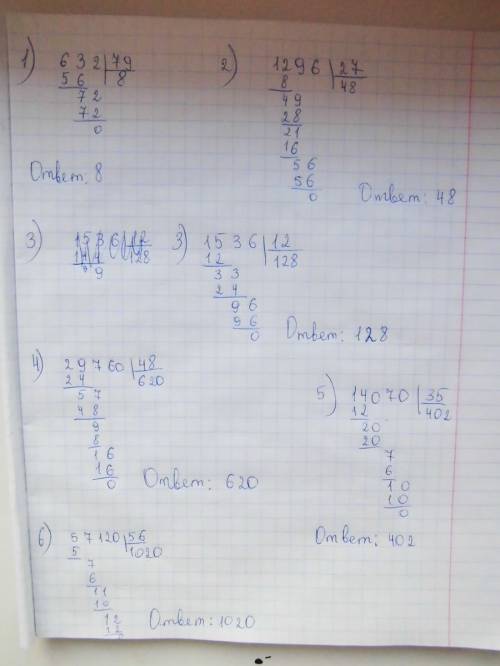 1) 632 | 79
56 8
72
72
0
Ответ: 8
2) 1296 | 27
8 48
49
28
21
16
56
56
0
Ответ: 48
3)
3) 1536 | 12
12 128
33
24
96
96
0
Ответ: 128
4) 29760 | 48
24 620
57
48
9
8
16
16
0
Ответ: 620
5) 14070 | 35
12 402
20
20
7
6
10
10
0
Ответ: 402
6) 57120 | 56
5 1020
7
6
11
10
12
12
Ответ: 1020